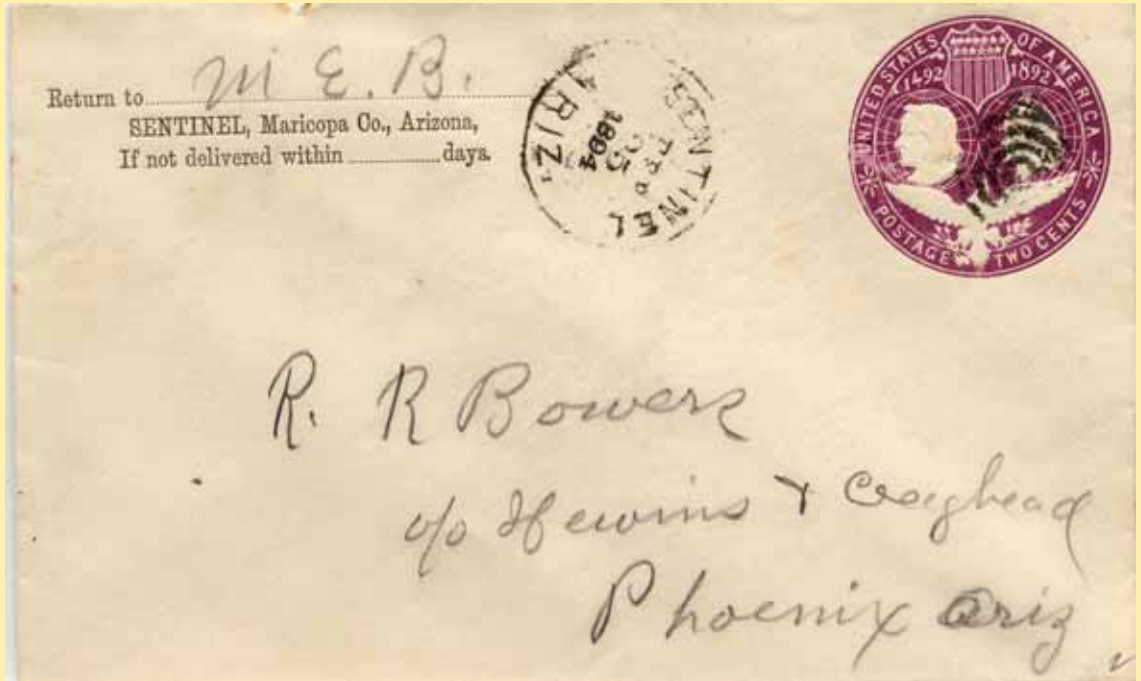 Return to M E. B.
SENTINEL, Maricopa Co., Arizona,
If not delivered within days.
SENTINEL
FEB
25
1894
ARIZ.
UNITED STATES OF AMERICA
1492 1892
POSTAGE TWO CENTS
R. R Bowers
c/o Hewins & Craghead
Phoenix Ariz